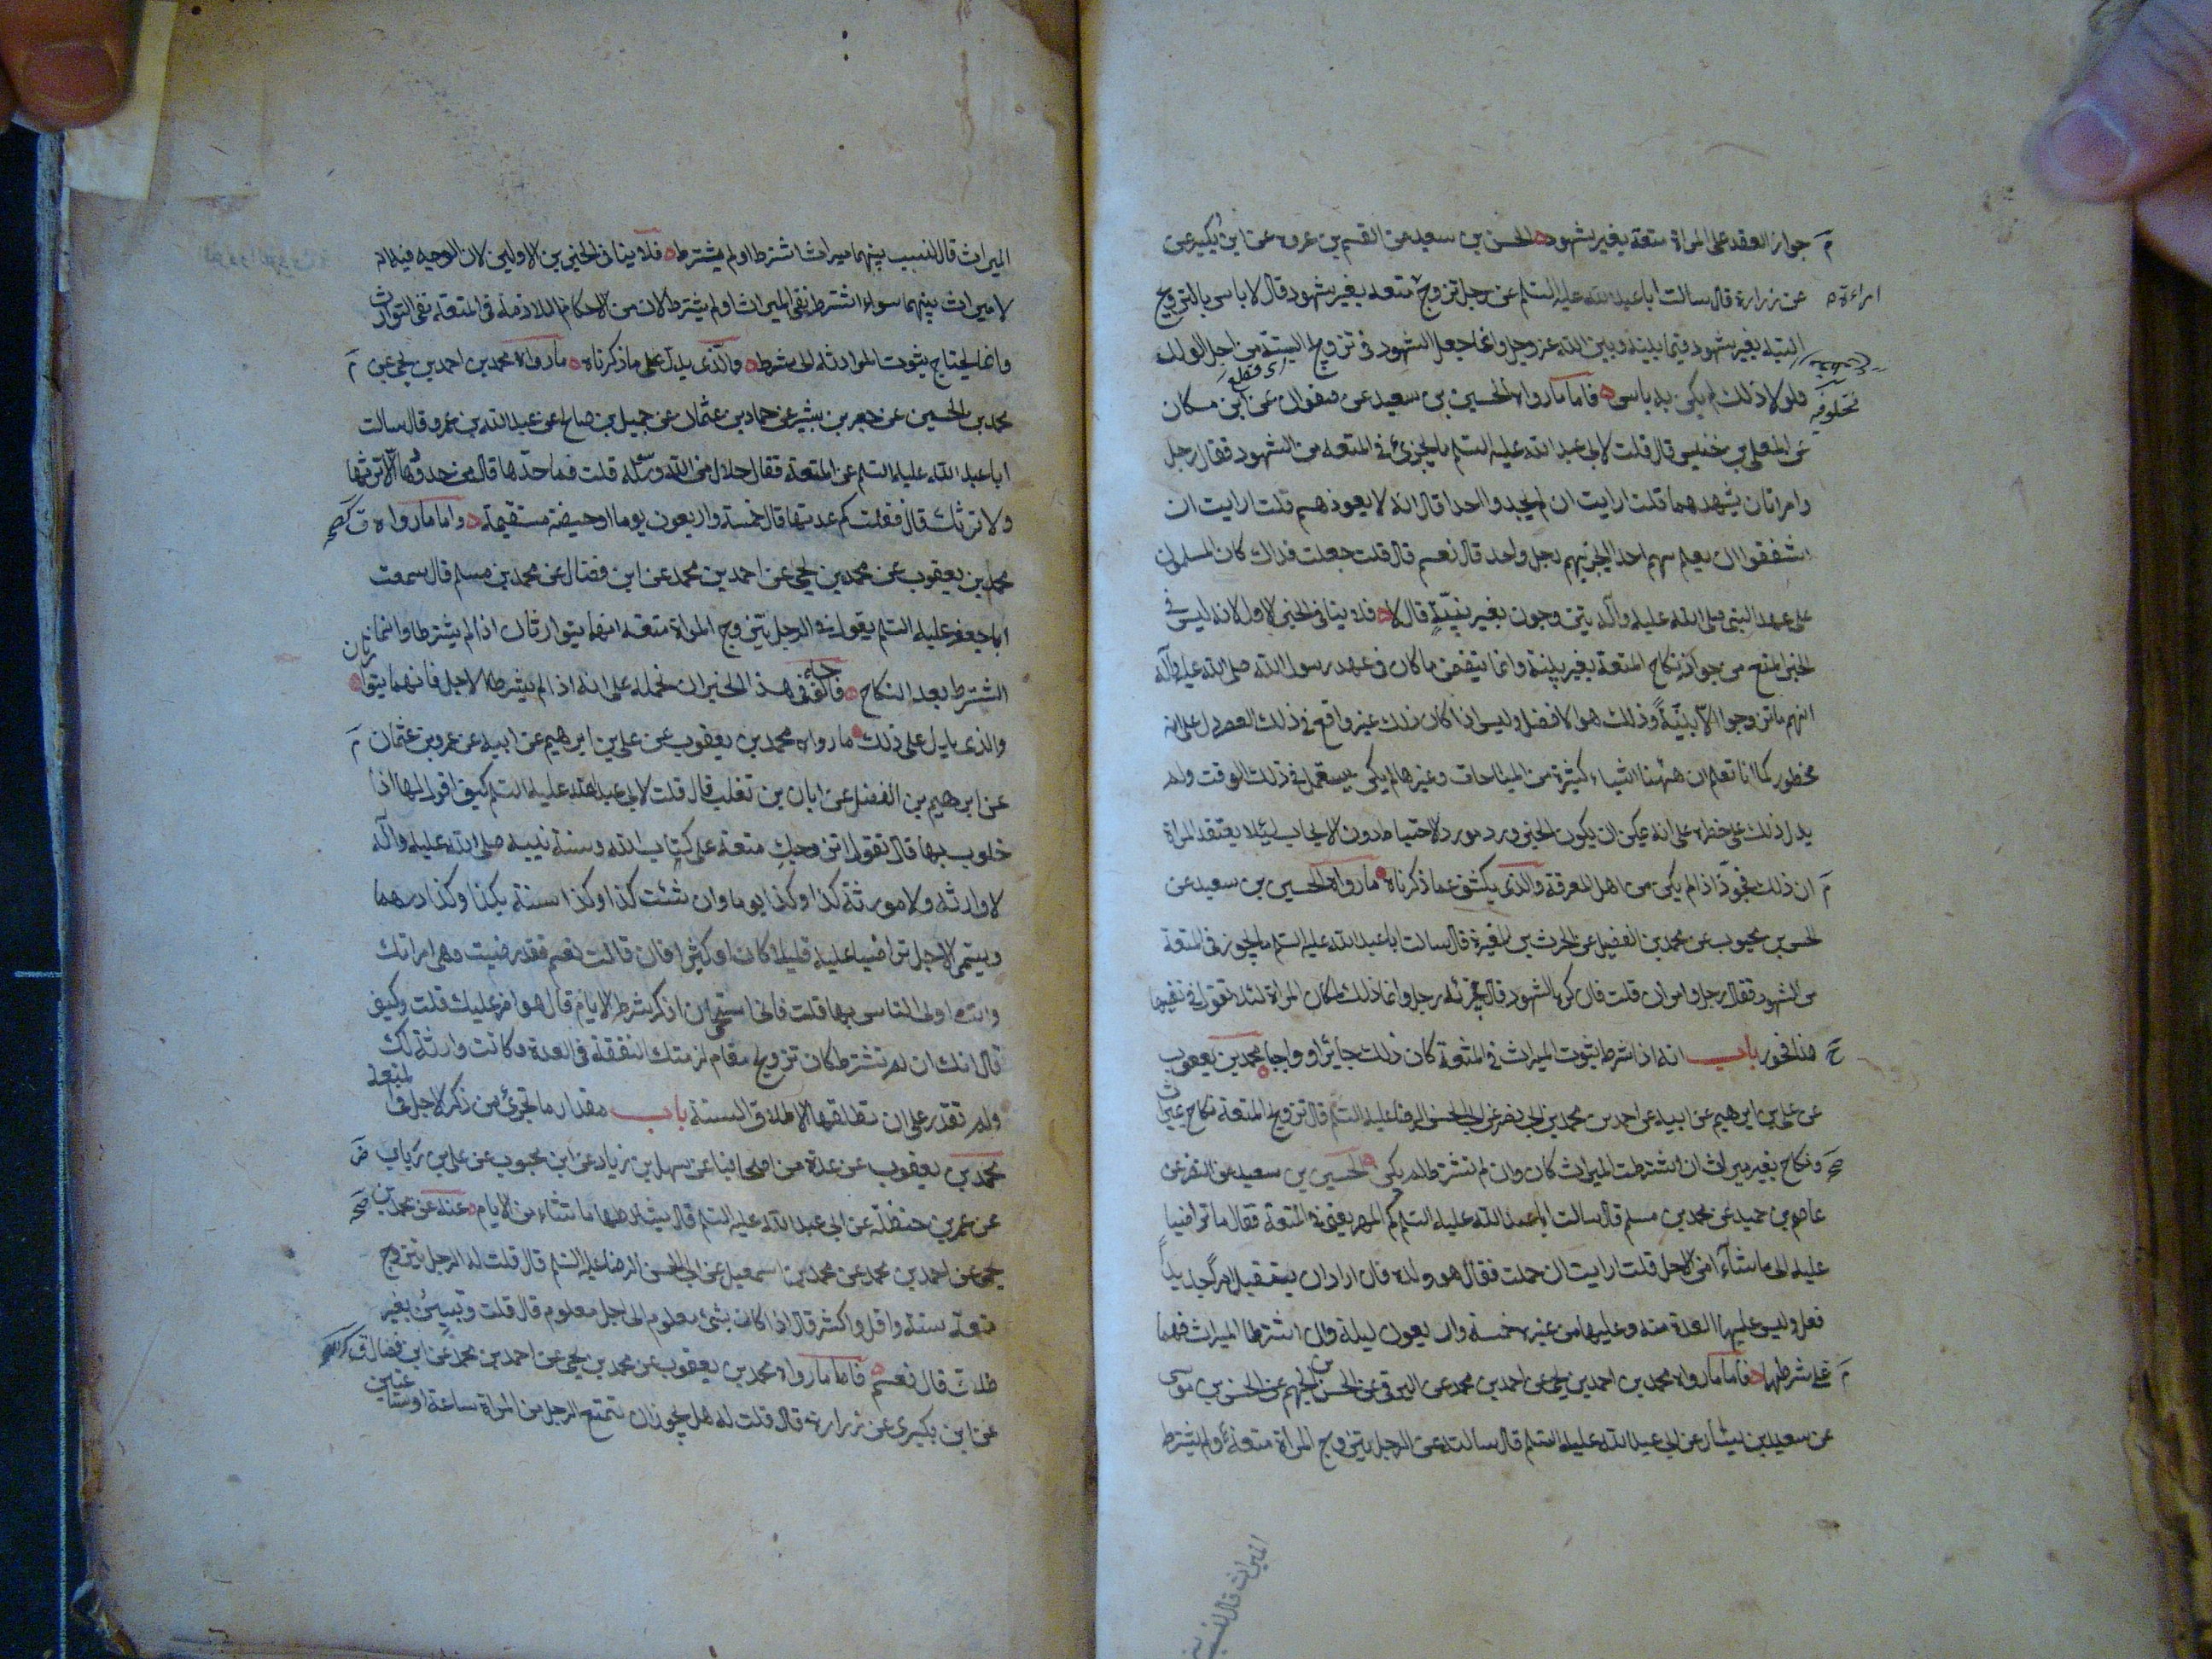 جواز العقد على المراة متعة بغير شهود الحسن بن سعيد عن القسم بن عروه عن ابن بكير عن
عن زرارة قال سالت ابا عبد الله عليه السلم عن رجل تزوج متعه بغير شهود قال لا باس بالتزويج
امراة
البته بغير شهود فيما بينه وبين الله عز وجل وانما جعل الشهود في تزويج البتة من اجل الولد
فلولا ذلك لم يكن به باس فاما ما رواه الحسين بن سعيد عن صفوان عن ابن مسكان
عن المعلى بن خنيس قال قلت لابى عبد الله عليه السلم ما يجزئ في المتعه من الشهود فقال رجل
وامراتان يشهدهما قلت ارايت ان لم يجد واحدا قال انه لا يعوذهم قلت ارايت ان
اشفقوا ان يعلم بهم احد ايجزيهم رجل واحد قال نعم قال قلت جعلت فداك كان المسلمون
على عهد النبي صلى الله عليه وآله يتزوجون بغير بينة قال لا فلا ينافى الخبر الاول لانه ليس في
الخبر المنع من جواز نكاح المتعة بغير بينة وانما يتضمن ما كان في عهد رسول الله صلى الله عليه وآله
انهم ما تزوجوا الا ببينة وذلك هو الافضل وليس اذا كان ذلك غير واقع في ذلك العصر دل على انه
محظور كما انا نعلم ان ههنا اشياء كثيرة من المباحات وغيرها لم يكن يستعمل في ذلك الوقت ولم
يدل ذلك على حظره على انه يمكن ان يكون الخبر ورد مورد الاحتياط دون الايجاب لئلا يعتقد المراة
ان ذلك فجور اذا لم يكن من اهل المعرفة والذى يكشف عما ذكرناه ما رواه الحسين بن سعيد عن
الحسن بن محبوب عن محمد بن الفضيل عن الحرث بن المغيرة قال سالت ابا عبد الله عليه السلم ما يجوز في المتعة
من الشهود فقال رجل وامراتان قلت فان كره الشهود قال يجزئه رجل وانما ذلك لمكان المراة لئلا تقول في نفسها
هذا فجور باب انه اذا شرط ثبوت الميراث في المتعة كان ذلك جائزا وواجبا محمد بن يعقوب
عن على بن ابرهيم عن ابيه عن احمد بن محمد بن ابى نصر عن ابى الحسن الرضا عليه السلم قال تزويج المتعة نكاح بميراث
ونكاح بغير ميراث ان اشترطت الميراث كان وان لم تشترط لم يكن الحسين بن سعيد عن النضر عن
عاصم بن حميد عن محمد بن مسلم قال سالت ابا عبد الله عليه السلم كم المهر يعنى في المتعة فقال ما تراضيا
عليه الى ما شاءا من الاجل قلت ارايت ان حملت فقال هو ولده فان اراد ان يستقبل امرا جديدا
فعل وليس عليها العدة منه وعليها من غيره خمسة واربعون ليلة وان اشترطا الميراث فهما
على شرطهما فاما ما رواه محمد بن احمد بن يحيى عن احمد بن محمد عن البرقى عن الحسن بن الجهم عن الحسن بن موسى
عن سعيد بن يسار عن ابى عبد الله عليه السلم قال سالته عن الرجل يتزوج المراة متعة ولم يشترط
الميراث قال ليس
الميراث قال ليس بينهما ميراث اشترط او لم يشترط فلا ينافى الخبرين الاولين لان الوجه فيه انه
لا ميراث بينهما سواء اشترط نفى الميراث او لم يشترط لان من الاحكام اللازمة في المتعة نفى التوارث
وانما يحتاج ثبوت الموارثة الى شرط والذى يدل على ما ذكرناه ما رواه محمد بن احمد بن يحيى عن
محمد بن الحسين عن جعفر بن بشير عن حماد بن عثمان عن جميل بن صالح عن عبد الله بن عمرو قال سالت
ابا عبد الله عليه السلم عن المتعة فقال حلال من الله ورسوله قلت فما حدها قال من حدودها الا ترثها
ولا ترثك قال فقلت كم عدتها قال خمسة واربعون يوما او حيضة مستقيمة واما ما رواه
محمد بن يعقوب عن محمد بن يحيى عن احمد بن محمد عن ابن فضال عن محمد بن مسلم قال سمعت
ابا جعفر عليه السلم يقول في الرجل يتزوج المراة متعة انهما يتوارثان اذا لم يشترطا وانما
الشرط بعد النكاح فالوجه في هذا الخبر ان نحمله على انه اذا لم يشترط الاجل فانهما يتوارثان
والذى يدل على ذلك ما رواه محمد بن يعقوب عن على بن ابرهيم عن ابيه عن عمرو بن عثمان
عن ابرهيم بن الفضل عن ابان بن تغلب قال قلت لابى عبد الله عليه السلم كيف اقول لها اذا
خلوت بها قال تقول اتزوجك متعة على كتاب الله وسنة نبيه صلى الله عليه وآله
لا وارثة ولا مورثة كذا وكذا يوما وان شئت كذا وكذا سنة بكذا وكذا درهما
ويسمى الاجل تراضيا عليه قليلا كان او كثيرا فان قالت نعم فقد رضيت وهى امراتك
وانت اولى الناس بها قلت فانى استحيى ان اذكر شرط الايام قال هو اضر عليك قلت وكيف
قال انك ان لم تشترط كان تزويج مقام لزمتك النفقة في العدة وكانت وارثة لك
ولم تقدر على ان تطلقها الا طلاق السنة باب مقدار ما يجزئ من ذكر الاجل في المتعة
محمد بن يعقوب عن عدة من اصحابنا عن سهل بن زياد عن ابن محبوب عن على بن رئاب
عن عمر بن حنظلة عن ابى عبد الله عليه السلم قال يشارطها ما شاء من الايام عنه عن محمد بن
يحيى عن احمد بن محمد عن محمد بن اسمعيل عن ابى الحسن الرضا عليه السلم قال قلت له الرجل يتزوج
متعة سنة واقل واكثر قال اذا كان بشئ معلوم الى اجل معلوم قال قلت وتبين بغير
طلاق قال نعم فاما ما رواه محمد بن يعقوب عن محمد بن يحيى عن احمد بن محمد عن ابن فضال
عن ابن بكير عن زرارة قال قلت له هل يجوز ان يتمتع الرجل من المراة ساعة او ساعتين